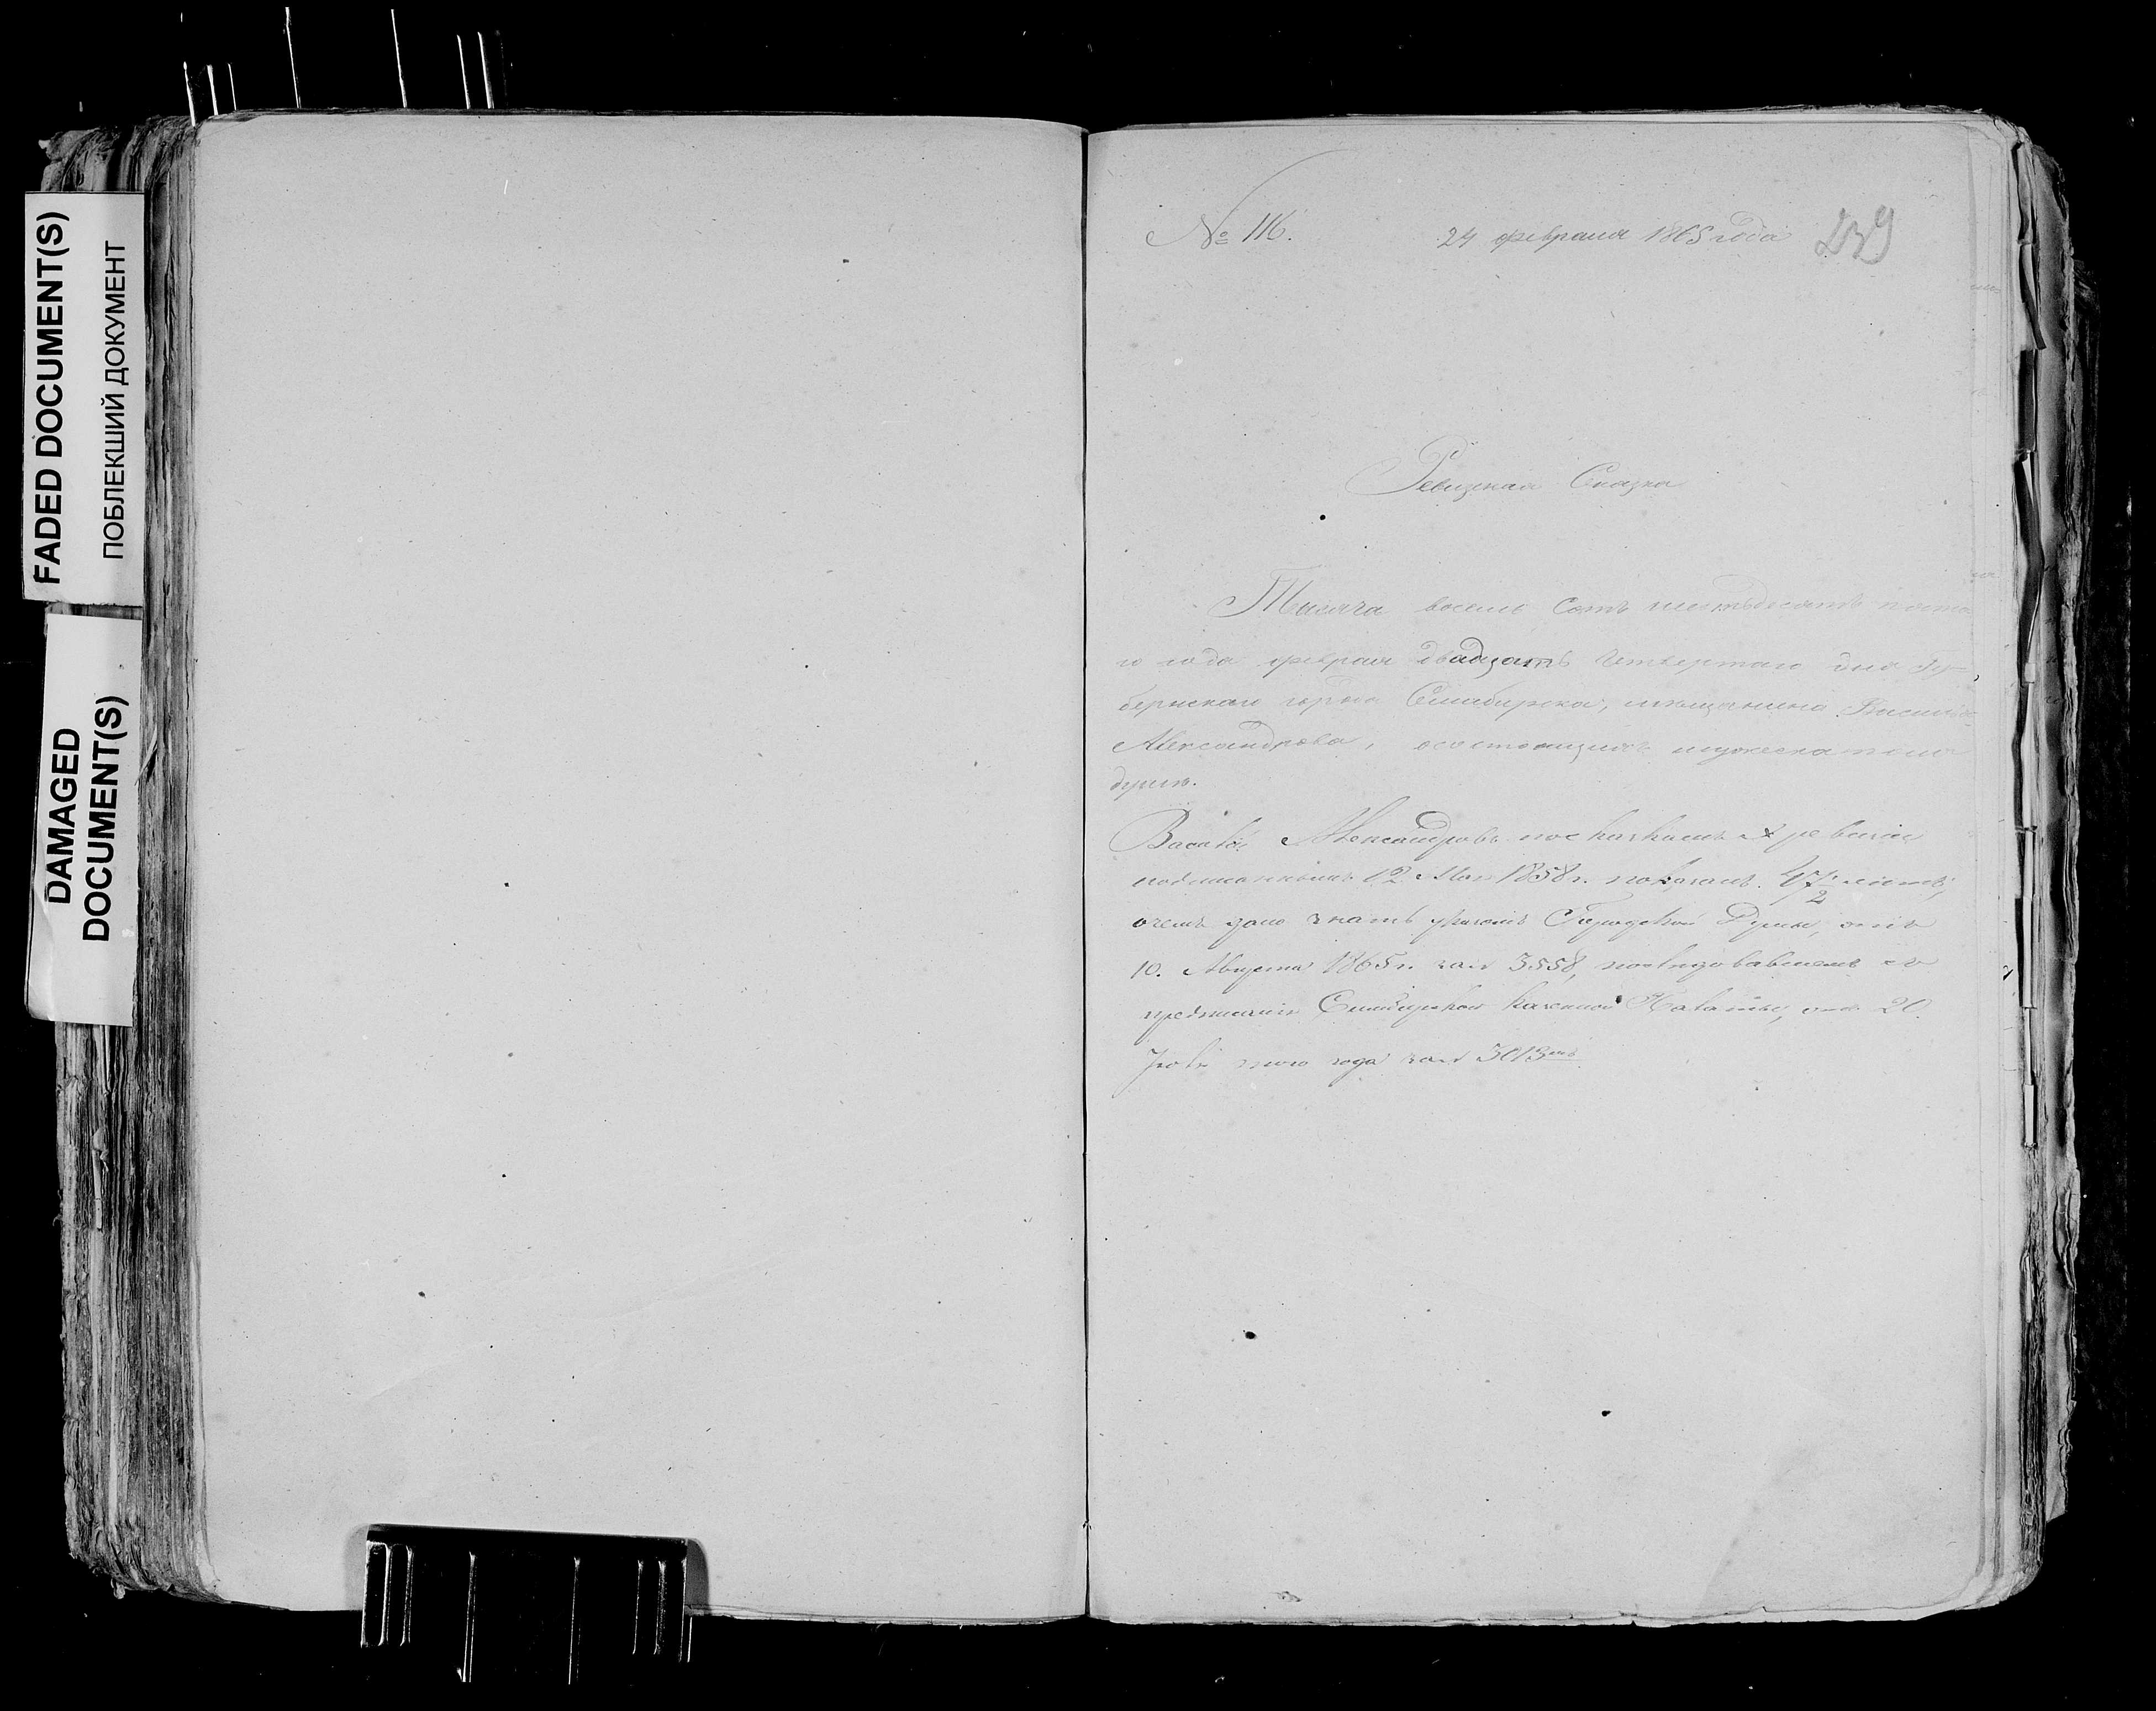 FADED DOCUMENT(S)
ПОБЛЕКШИЙ ДОКУМЕНТ
DAMAGED
DOCUMENT(S)
№ 116.
24 февраля 1865 года
239
Ревизская Сказка
Тысяча восемь сотъ шестьдесятъ пята
го года февраля двадцать четвертаго дня Гу=
бернскаго города Симбирска, мѣщанина Василья
Александрова, о состоящихъ мужеска пола
душъ.
Василій Александровъ по сказкамъ X ревизіи
поданнымъ 12 Мая 1858 г. показанъ 47 1/2 лѣтъ,
о чемъ дано знать указомъ Городской Думы, отъ
10. Августа 1865 г. за № 3558, последовавшемъ
предписанія Симбирской Казенной Палаты, отъ 20
Іюля того года за № 3013